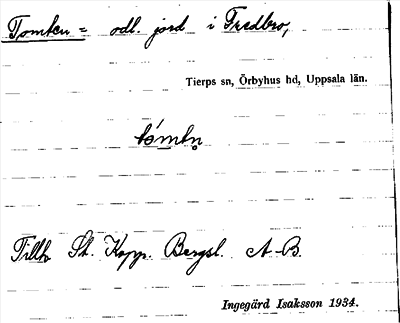 Tomten = odl. jord i Fredbro,
Tierps sn, Örbyhus hd, Uppsala län.
tómtn̥
Tillh. St. Kopp. Bergsl. A-B.
Ingegärd Isaksson 1934.